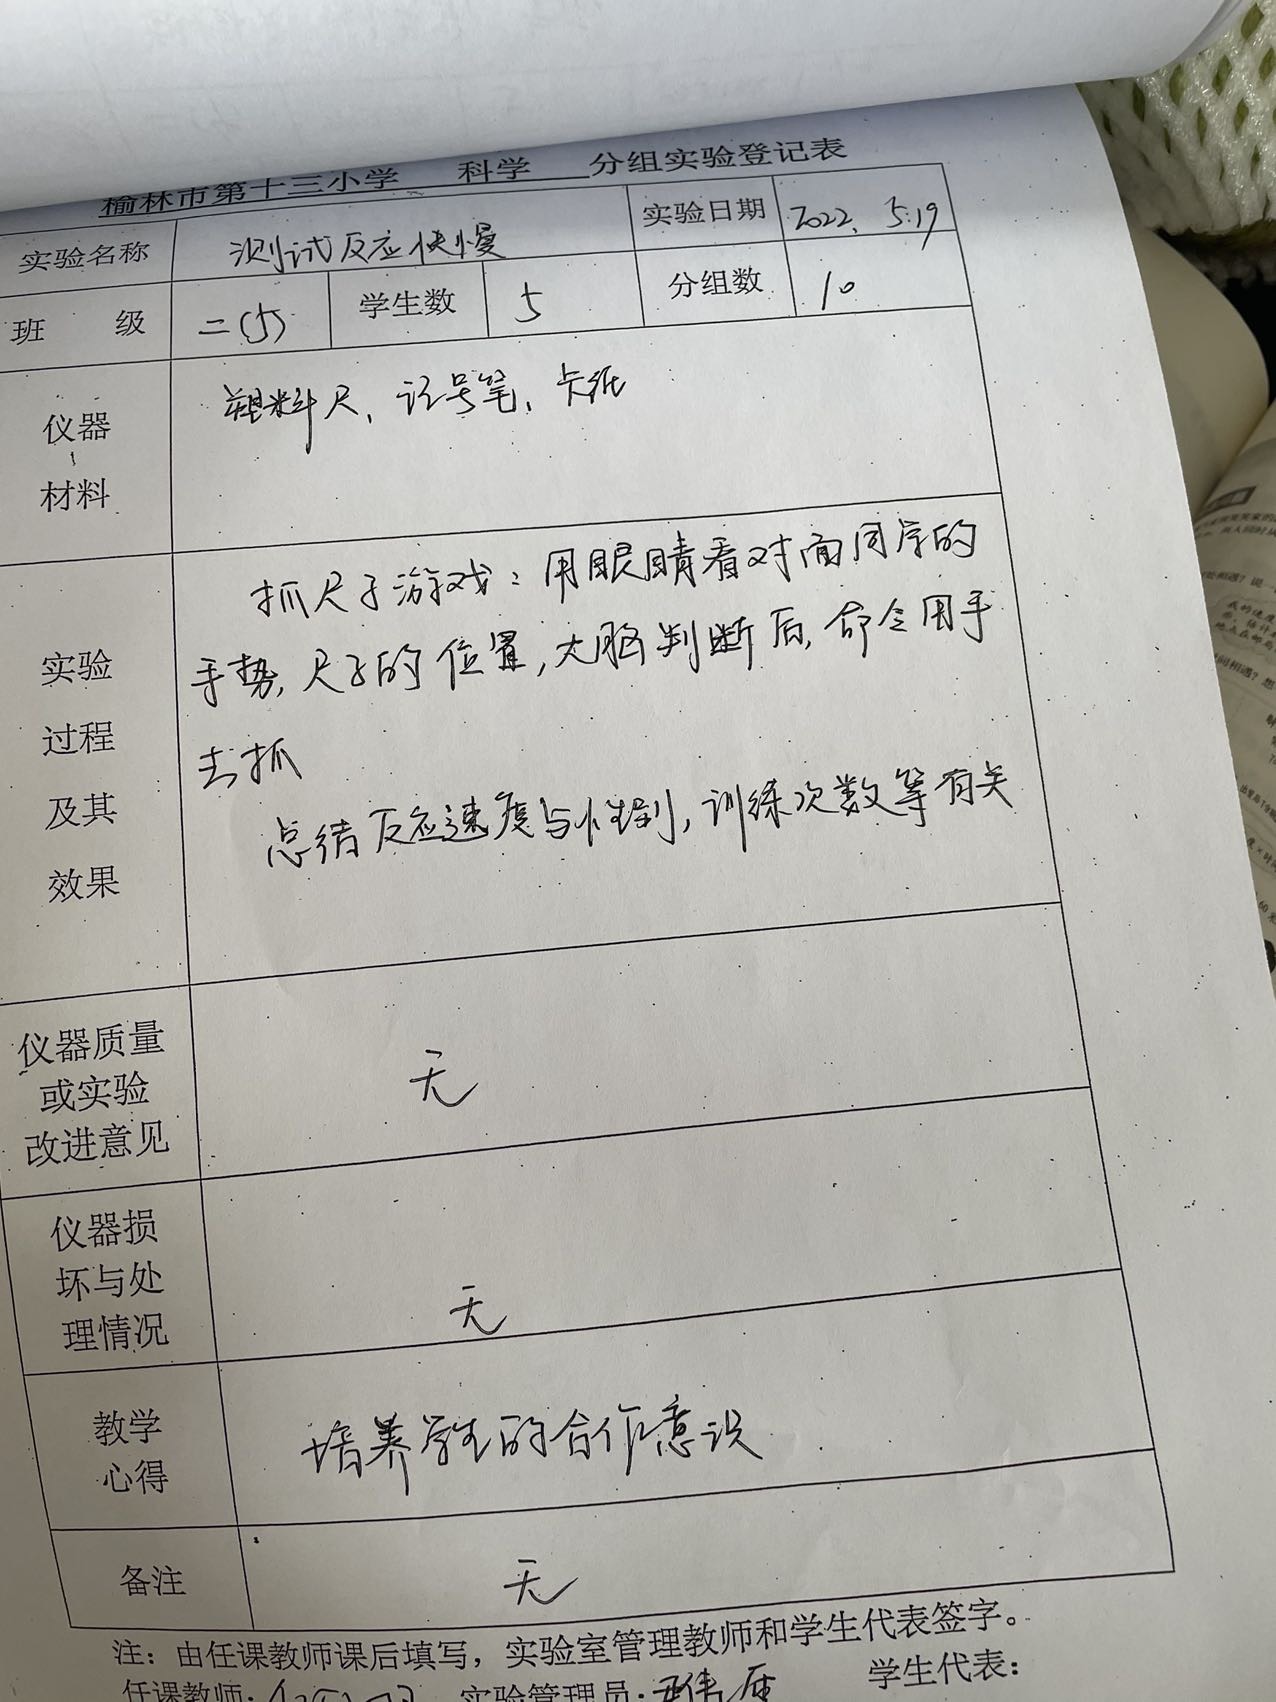 榆林市第十三小学 科学 分组实验登记表
实验名称 测试反应快慢 实验日期 2022.5.19
班 级 二(5) 学生数 5 分组数 10
仪器 塑料尺、记号笔、卡纸
材料
抓尺子游戏：用眼睛看对面同学的
实验 手势,尺子的位置,大脑判断后,命令用手
过程 去抓
及其 总结反应速度与性别,训练次数等有关
效果
仪器质量
或实验 无
改进意见
仪器损
坏与处
理情况 无
教学 培养学生的合作意识
心得
备注 无
注：由任课教师课后填写，实验室管理教师和学生代表签字。
任课教师: 实验管理员: 学生代表：